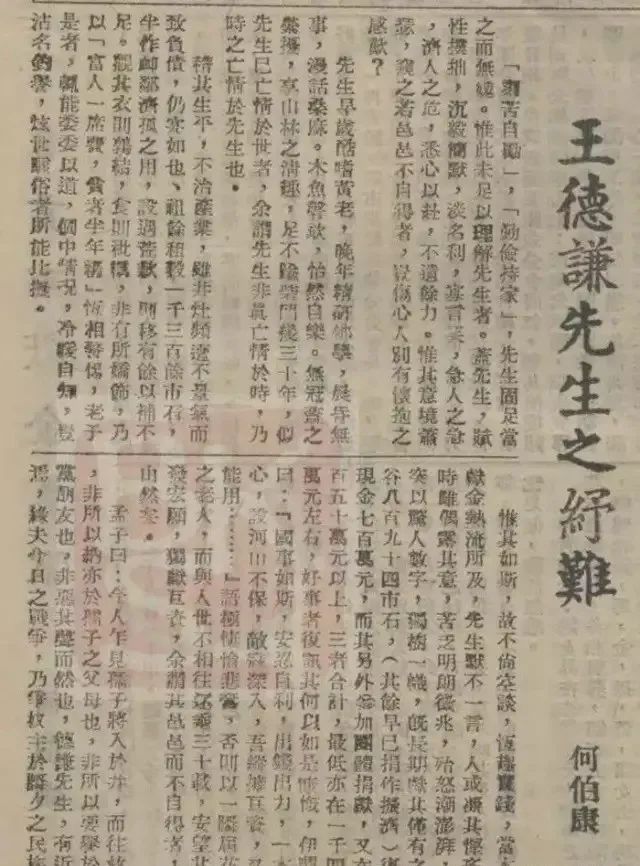 王德謙先生之紓難
何伯康
「刻苦自勵」，「勤儉持家」，先生固足當
之而無媿。惟此未足以理解先生者。蓋先生，賦
性撲拙，沉毅簡默，淡名利，寡言笑，急人之急
，濟人之危，悉心以赴，不遺餘力。惟其意境蕭
瑟，窺之若邑邑不自得者，豈傷心人別有懷抱之
感歟？
先生早歲酷嗜黃老，晚年精研佛學，晨昏無
事，漫話桑麻。木魚聲欬，怡然自樂。無冠蓋之
縈擾，享山林之清趣，足不踰柴門幾三十年，似
先生已亡情於世者，余謂先生非眞亡情於時，乃
時之亡情於先生也。
稽其生平，不治產業，雖非灶頻遭不景氣而
致負債，仍寒如也、祖餘租穀一千三百餘市石，
半作卹鄰濟孤之用，設遇荒歉，則移有餘以補不
足。觀其衣則鶉結，食則秕糲，非有所矯飾，乃
以「富人一席費，貧者半年糧」恆相警惕，老子
是者，輒能委委以道，個中情況，冷暖自知，豈
沽名釣譽，炫世驕俗者所能比擬。
惟其如斯，故不倘空談，恆極實踐，當
獻金熱流所及，先生默不一言，人或擬其慳
時雖偶露其意，苦乏明朗徵兆，殆怒潮澎湃，
突以驚人數字，獨樹一幟，旣長期獻其僅有之
谷八百九十四市石，（其餘早已捐作賑濟）復
現金七百萬元，而其另外參加團體捐獻，又在
百五十萬元以上，三者合計，最低亦在一千四
萬元左右，好事者復訊其何以如是慷慨，伊喟
曰：「國事如斯，安忍自利，出錢出力，一本
心，設河山不保，敵寇深入，吾縱擁巨資，又
能用………」語極悽愴悲奮，否則以一瞬屆花
之老人，而與人世不相往還垂三十載，安望其
發宏願，獨獻巨資，余謂其邑邑而不自得者，
山然矣。
孟子曰：今人乍見孺子將入於井，而往救
，非所以納亦於孺子之父母也，非所以要譽於
黨朋友也，非惡其聲而然也，德謙先生，有近
焉，緣夫今日之戰爭，乃爭奴主於賢夕之民族